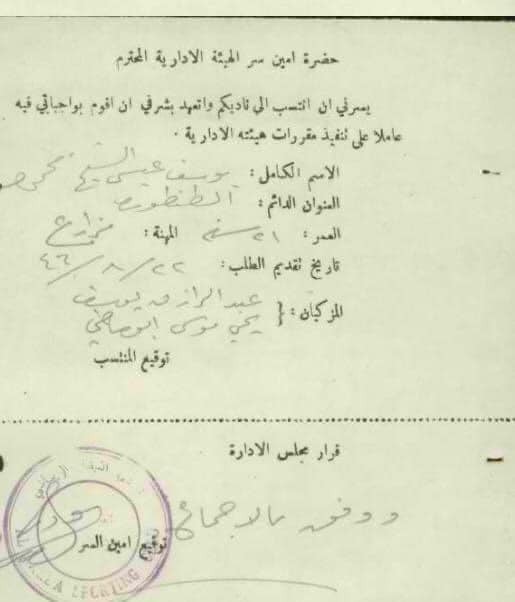 حضرة امين سر الهيئة الادارية المحترم
يسرني ان انتسب الى ناديكم واتعهد بشرفي ان اقوم بواجباتي فيه
عاملا على تنفيذ مقررات هيئته الادارية .
الاسم الكامل : يوسف عيسى الشيخ محمود
العنوان الدائم : الطنطورة
العمر : ٢١ سنة المهنة : مزارع
تاريخ تقديم الطلب : ٢٢ / ٨ / ٤٦
المزكيان : { عبد الرازق يوسف
يحي موسى ابو ماضي
توقيع المنتسب
قرار مجلس الادارة
ووفق بالاجماع
توقيع امين السر
SPORTING